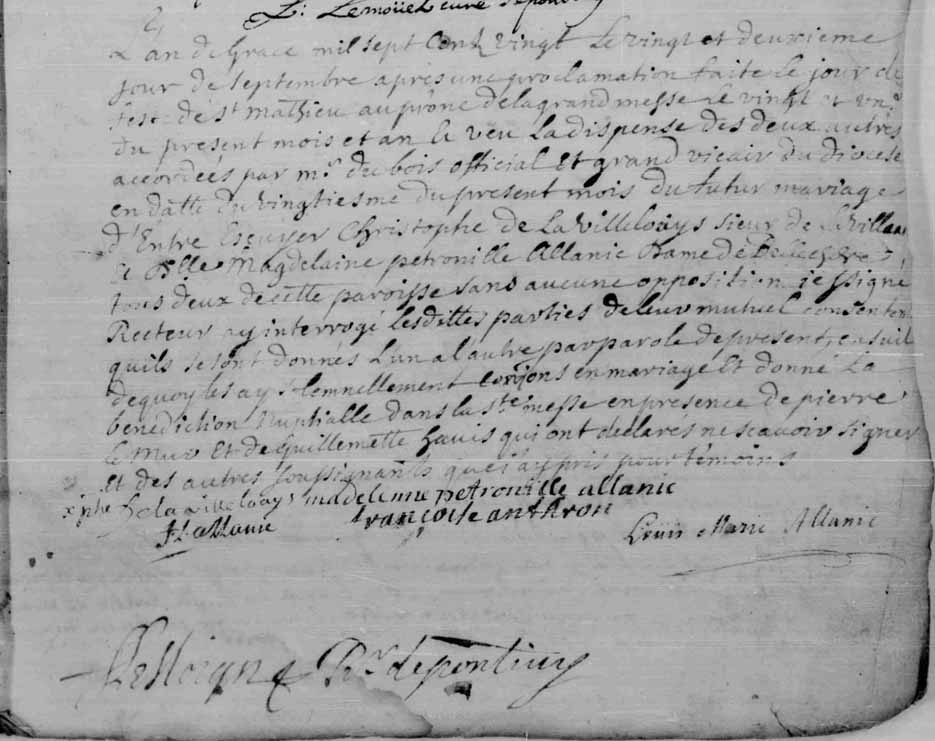 L: Lemoüel curé de pontivy
L'an de Grace mil sept Cent vingt Le vingt et deuxieme
jour de septembre apres une proclamation faite Le jour de
feste de st mathieu au prône de la grand messe Le vingt et un
du present mois et an & veu La dispense des deux autres
accordées par mr. du bois official Et grand vicair du diocese
en datte du vingtiesme du present mois du futur mariage
d'Entre Escuyer Christophe de La Villelouays sieur de
& delle Magdelaine petronille Allanic Dame de
tous deux de cette paroisse sans aucune opposition, je ssigné
Recteur ay interrogé lesdittes parties de leur mutuel consentem
quils se sont donnés L'un a l'autre par parole de present, ensuit
dequoy les ay slemnellement conjons en mariage Et donné La
benediction Nuptialle dans la ste messe en presence de pierre
Le Mur Et de Guillemette havis qui ont declares ne scavoir signer
Et des autres soussignants que j'ay pris pour témoins
xphe de la villelouays madelenne petronille allanic
françoise anthron
allanic Louis Marie Allanic
Le Moigne Rr. de pontivy